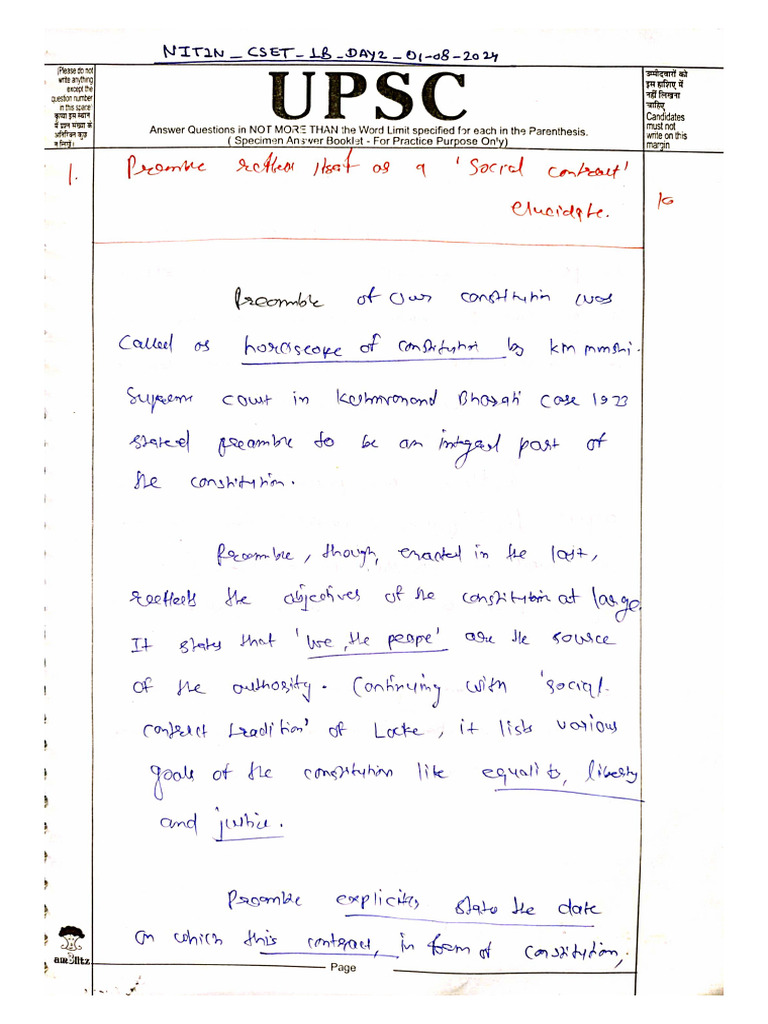 NITIN_CSET-1B_DAY2_01-08-2024
(Please do not
write anything
except the
question number
in this space
कृपया इस स्थान
में प्रश्न संख्या के
अतिरिक्त कुछ
न लिखें)
UPSC
Answer Questions in NOT MORE THAN the Word Limit specified for each in the Parenthesis.
( Specimen Answer Booklet - For Practice Purpose Only)
उम्मीदवारों को
इस हाशिए में
नहीं लिखना
चाहिए
Candidates
must not
write on this
margin
1. Preamble itself as a 'Social contract'
elucidate. 10
Preamble of our constitution was
called as horoscope of constitution by KM Munshi.
Supreme court in Keshvanand Bharati Case 1973
stated preamble to be an integral part of
the constitution.
Preamble, though, enacted in the last,
reflects the objectives of the constitution at large.
It states that 'we, the people' are the source
of the authority. Continuing with 'social
contract tradition' of Locke, it lists various
goals of the constitution like equality, liberty
and justice.
Preamble explicitly states the date
on which this contract, in form of constitution,
am3litz
Page